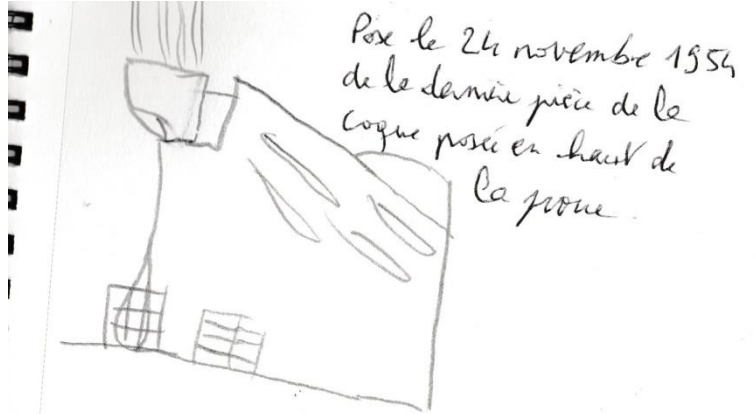 Pose le 24 novembre 1954
de la dernière pièce de la
coque posée en haut de
la proue.